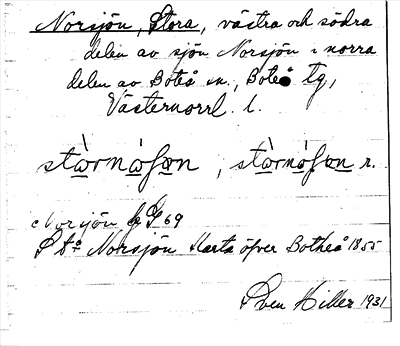 Norsjön, Stora, västra och södra
delen av sjön Norsjön i norra
delen av Boteå sn., Boteå tg,
Västernorrl. l.
Norsjön 69
St:a Norsjön Karta öfver Botheå 1855
Sven Hiller 1931